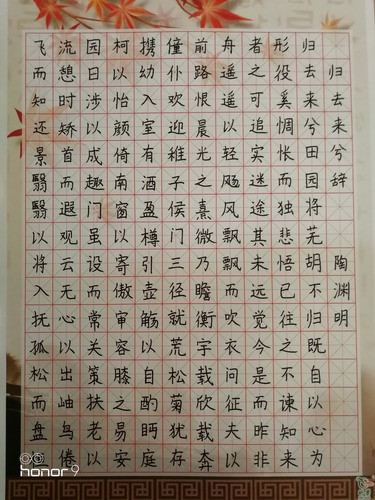 归去来兮辞 陶渊明
归去来兮田园将芜胡不归既自以心为
形役奚惆怅而独悲悟已往之不谏知来
者之可追实迷途其未远觉今是而昨非
舟遥遥以轻飏风飘飘而吹衣问征夫以
前路恨晨光之熹微乃瞻衡宇载欣载奔
僮仆欢迎稚子候门三径就荒松菊犹存
携幼入室有酒盈樽引壶觞以自酌眄庭
柯以怡颜倚南窗以寄傲审容膝之易安
园日涉以成趣门虽设而常关策扶老以
流憩时矫首而遐观云无心以出岫鸟倦
飞而知还景翳翳以将入抚孤松而盘
honor 9